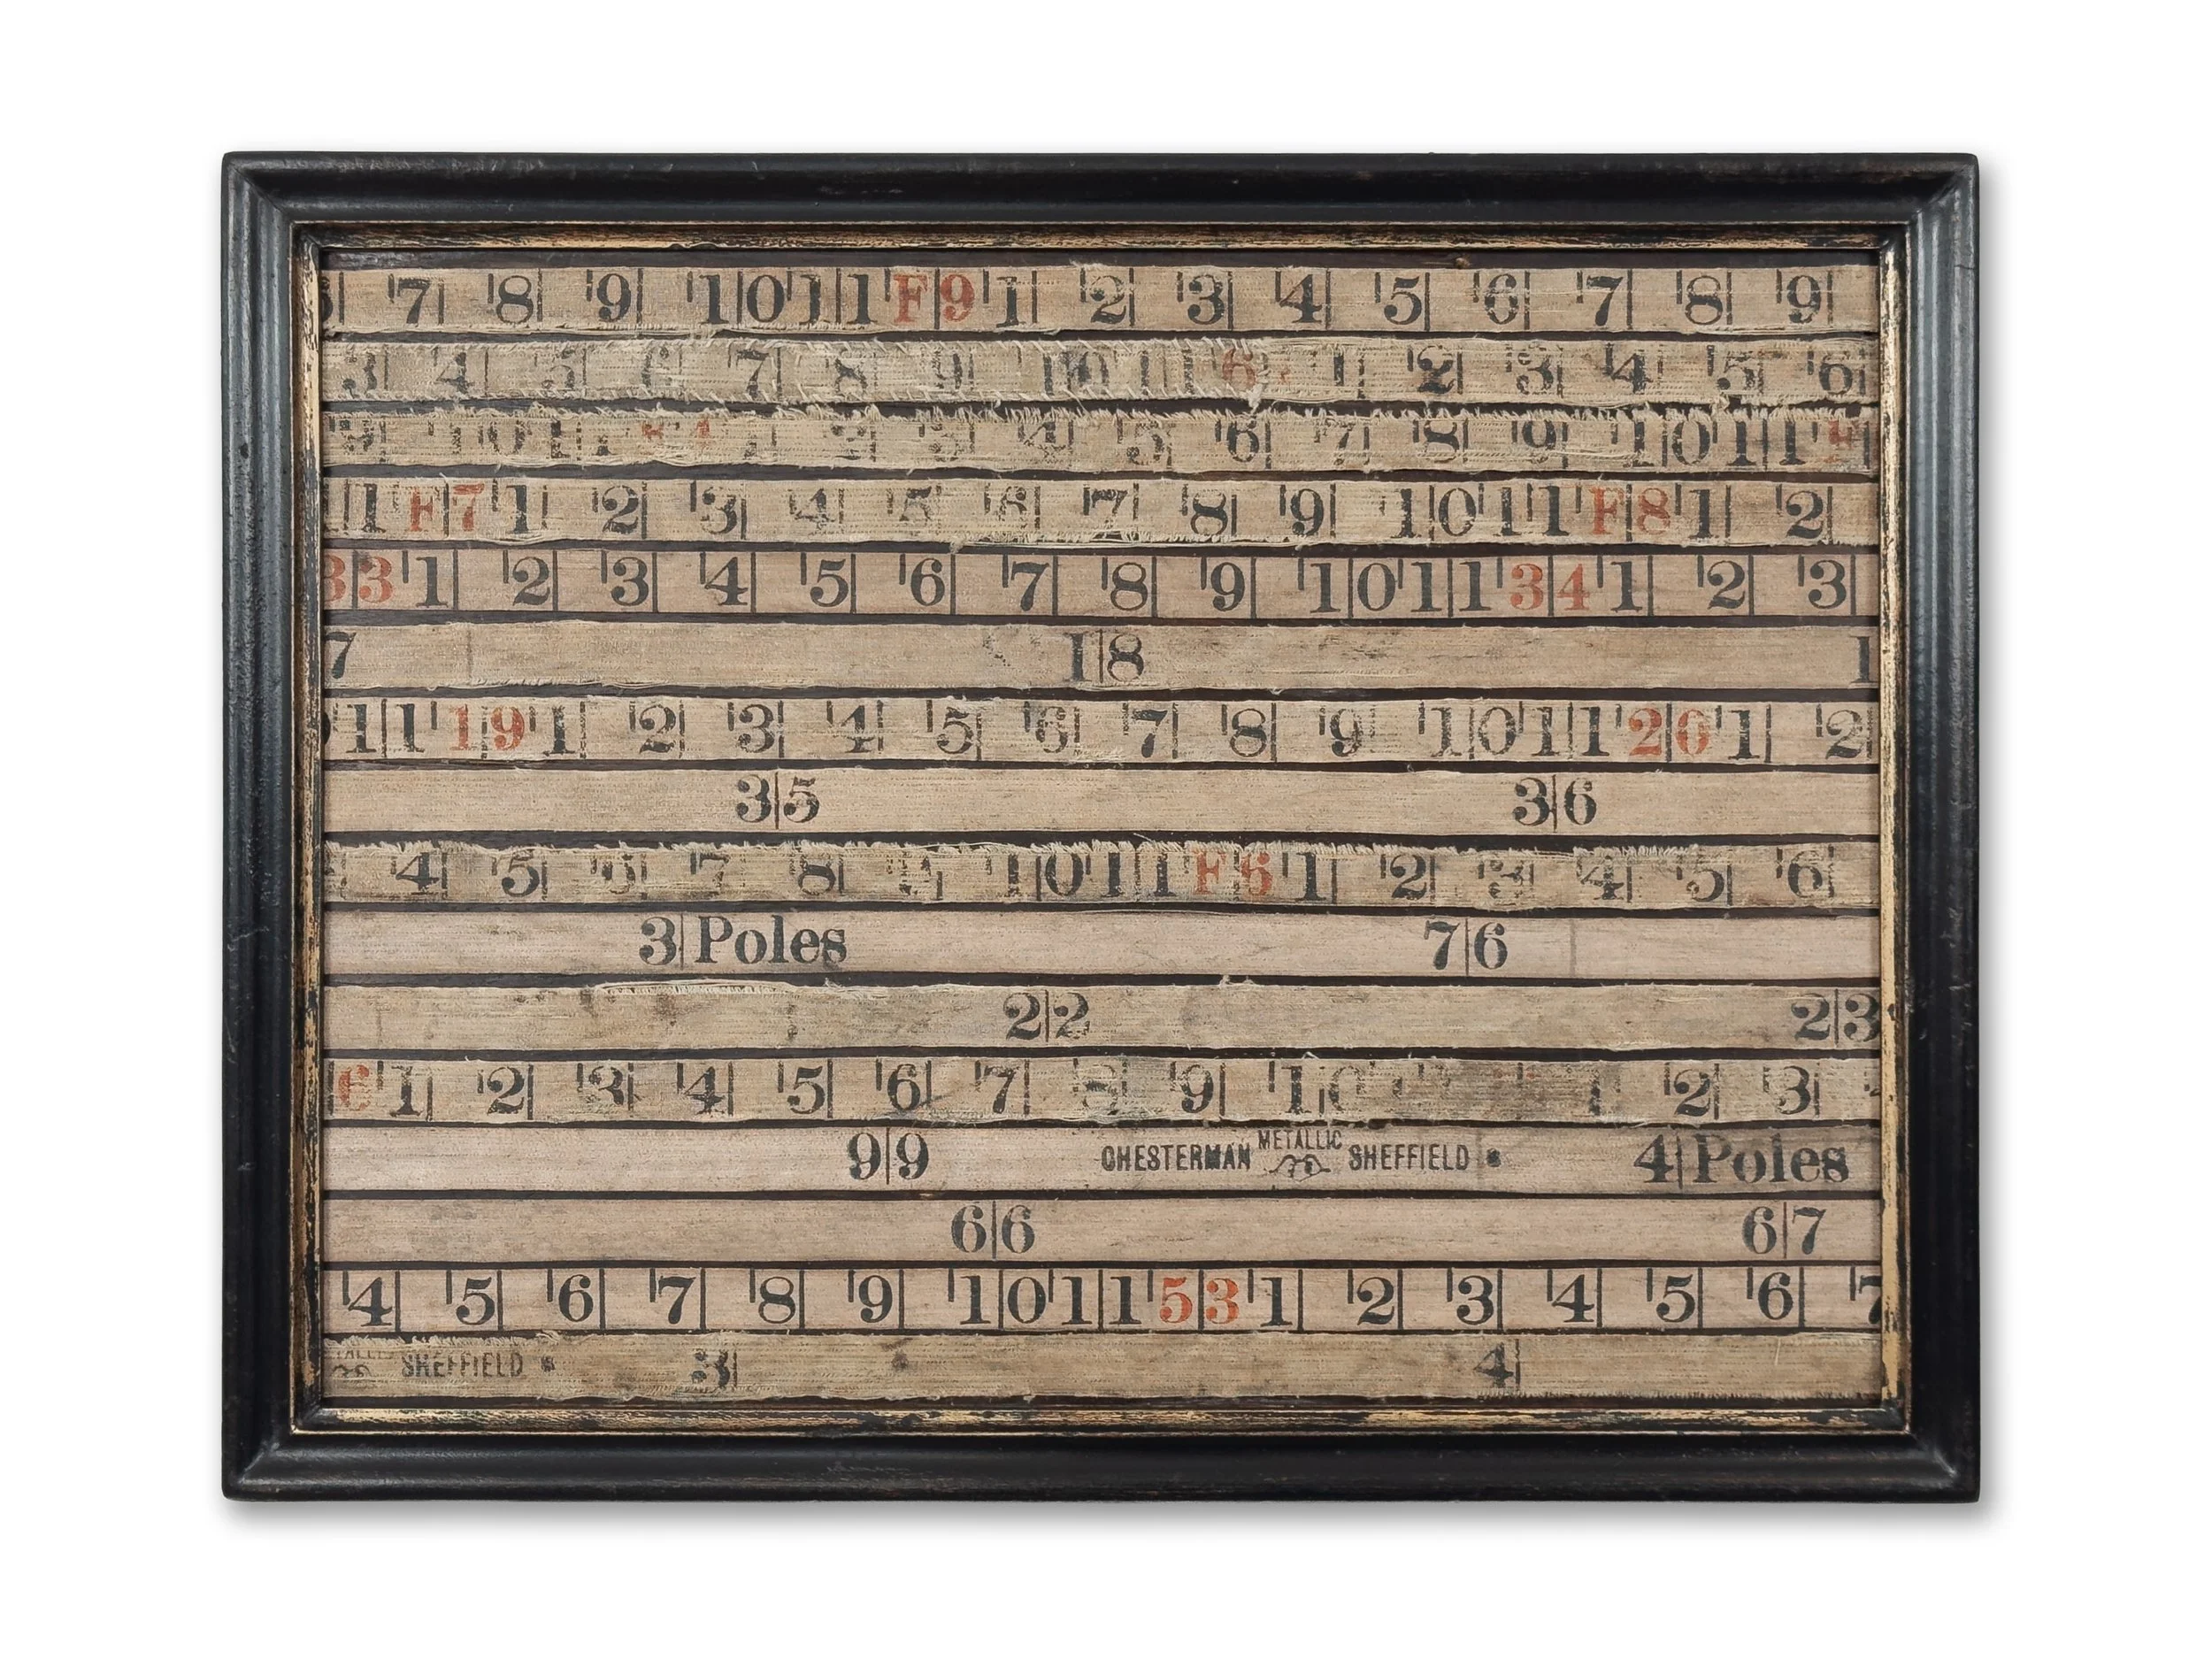 7 8 9 10 11 F9 1 2 3 4 5 6 7 8 9
3 4 5 6 7 8 9 10 11 6 1 2 3 4 5 6
9 10 11 4 2 3 4 5 6 7 8 9 10 11 F
11 F7 1 2 3 4 5 6 7 8 9 10 11 F8 1 2
33 1 2 3 4 5 6 7 8 9 10 11 34 1 2 3
7 18 1
11 19 1 2 3 4 5 6 7 8 9 10 11 20 1 2
35 36
4 5 6 7 8 9 10 11 F5 1 2 3 4 5 6
3 Poles 76
22 23
6 1 2 3 4 5 6 7 8 9 10 1 2 3
99 CHESTERMAN METALLIC SHEFFIELD 4 Poles
66 67
4 5 6 7 8 9 10 11 53 1 2 3 4 5 6 7
METALLIC SHEFFIELD 3 4